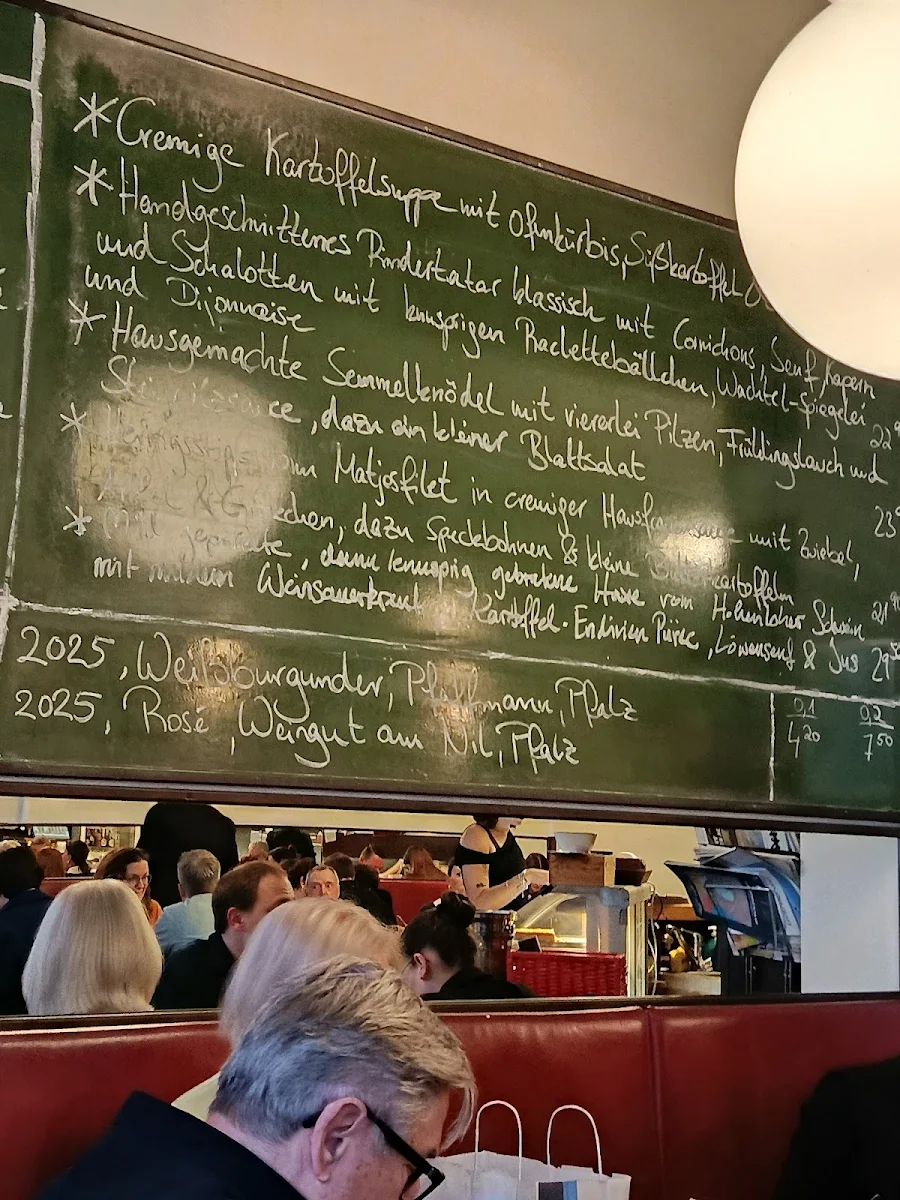 * Cremige Kartoffelsuppe mit Ofenkürbis, Süßkartoffel
* Handgeschnittenes Rindertatar klassisch mit Cornichons, Senf, Kapern
und Schalotten mit knusprigen Raclettebällchen, Wachtel-Spiegelei
und Dijonnaise 22
* Hausgemachte Semmelknödel mit viererlei Pilzen, Frühlingslauch und
dazu ein kleiner Blattsalat 23
* Matjesfilet in cremiger mit Zwiebel,
dazu Speckbohnen & kleine 21
* gebratene Haxe vom Hohenloher Schwein
mit Weinsauerkraut Kartoffel-Endivien Püree, Löwensenf & Jus 29
2025, Weißburgunder, Pfaffmann, Pfalz
2025, Rosé, Weingut am Nil, Pfalz
0,1 0,2
4,20 7,50